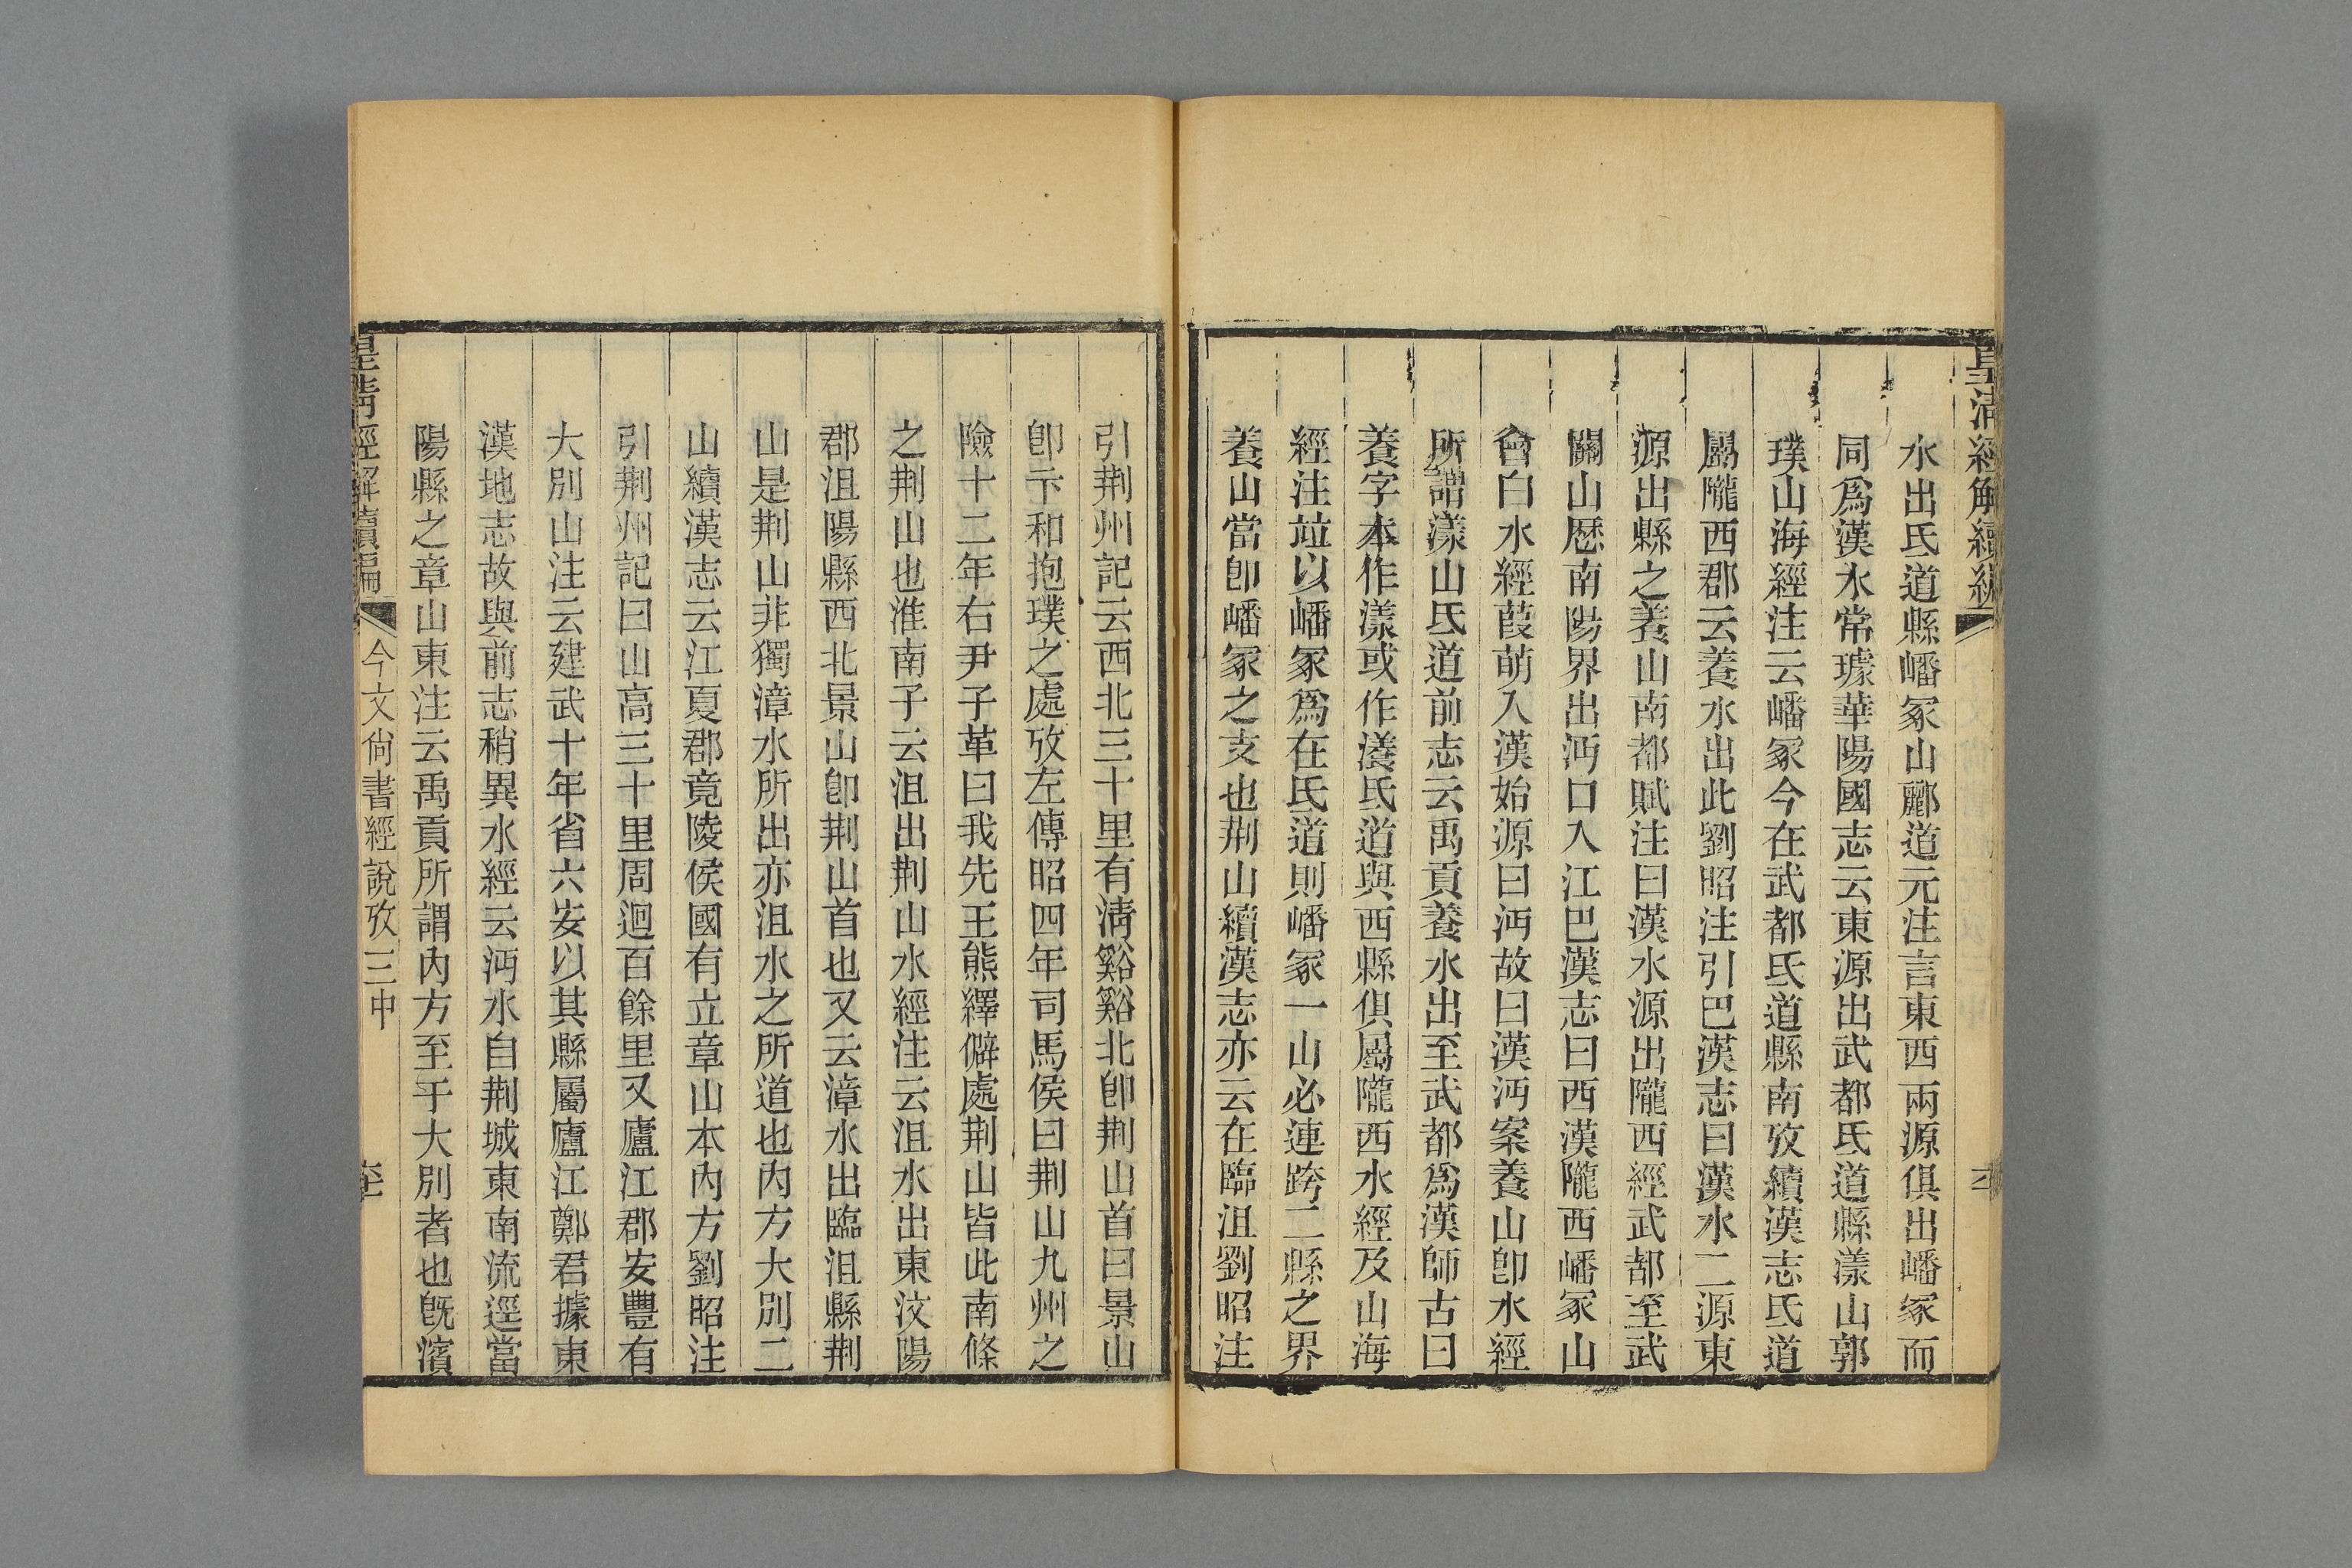 皇清經解續編
水出氐道縣嶓冢山酈道元注言東西兩源俱出嶓冢而
同爲漢水常璩華陽國志云東源出武都氐道縣漾山郭
璞山海經注云嶓冢今在武都氐道縣南攷續漢志氐道
屬隴西郡云養水出此劉昭注引巴漢志曰漢水二源東
源出縣之養山南都賦注曰漢水源出隴西經武都至武
關山歴南陽界出沔口入江巴漢志曰西漢隴西嶓冢山
會白水經葭萌入漢始源曰沔故曰漢沔案養山卽水經
所謂漾山氐道前志云禹貢養水出至武都爲漢師古曰
養字本作漾或作瀁氐道與西縣俱屬隴西水經及山海
經注竝以嶓冢爲在氐道則嶓冢一山必連跨二縣之界
養山當卽嶓冢之支也荆山續漢志亦云在臨沮劉昭注
引荆州記云西北三十里有淸谿谿北卽荆山首曰景山
卽卞和抱璞之處攷左傳昭四年司馬侯曰荆山九州之
險十二年右尹子革曰我先王熊繹僻處荆山皆此南條
之荆山也淮南子云沮出荆山水經注云沮水出東汶陽
郡沮陽縣西北景山卽荆山首也又云漳水出臨沮縣荆
山是荆山非獨漳水所出亦沮水之所道也內方大別二
山續漢志云江夏郡竟陵侯國有立章山本內方劉昭注
引荆州記曰山高三十里周迴百餘里又廬江郡安豐有
大別山注云建武十年省六安以其縣屬廬江鄭君據東
漢地志故與前志稍異水經云沔水自荆城東南流逕當
陽縣之章山東注云禹貢所謂內方至于大別者也旣濱
皇淸經解續編
今文尙書經說攷三中